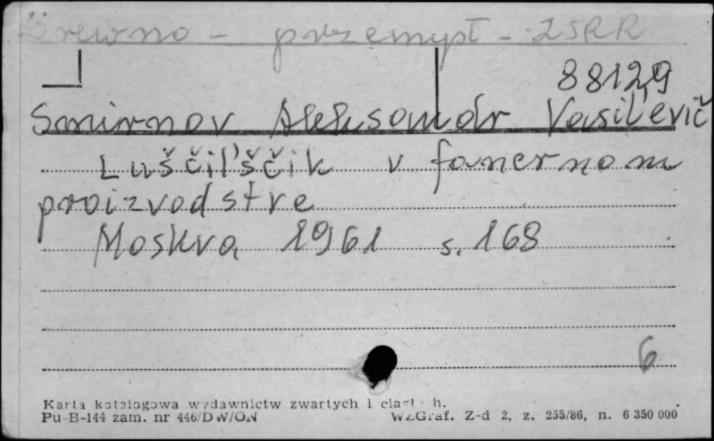 Drewno - przemysł - ZSRR
88129
Smirnov Aleksandr Vasil'evič
Luščil'ščik v fanernom
proizvodstve
Moskva 1961 s. 168
6
Karta katalogowa wydawnictw zwartych i ciągłych.
Pu-B-144 zam. nr 446/DW/ON WZGraf. Z-d 2, z. 255/86, n. 6 350 000